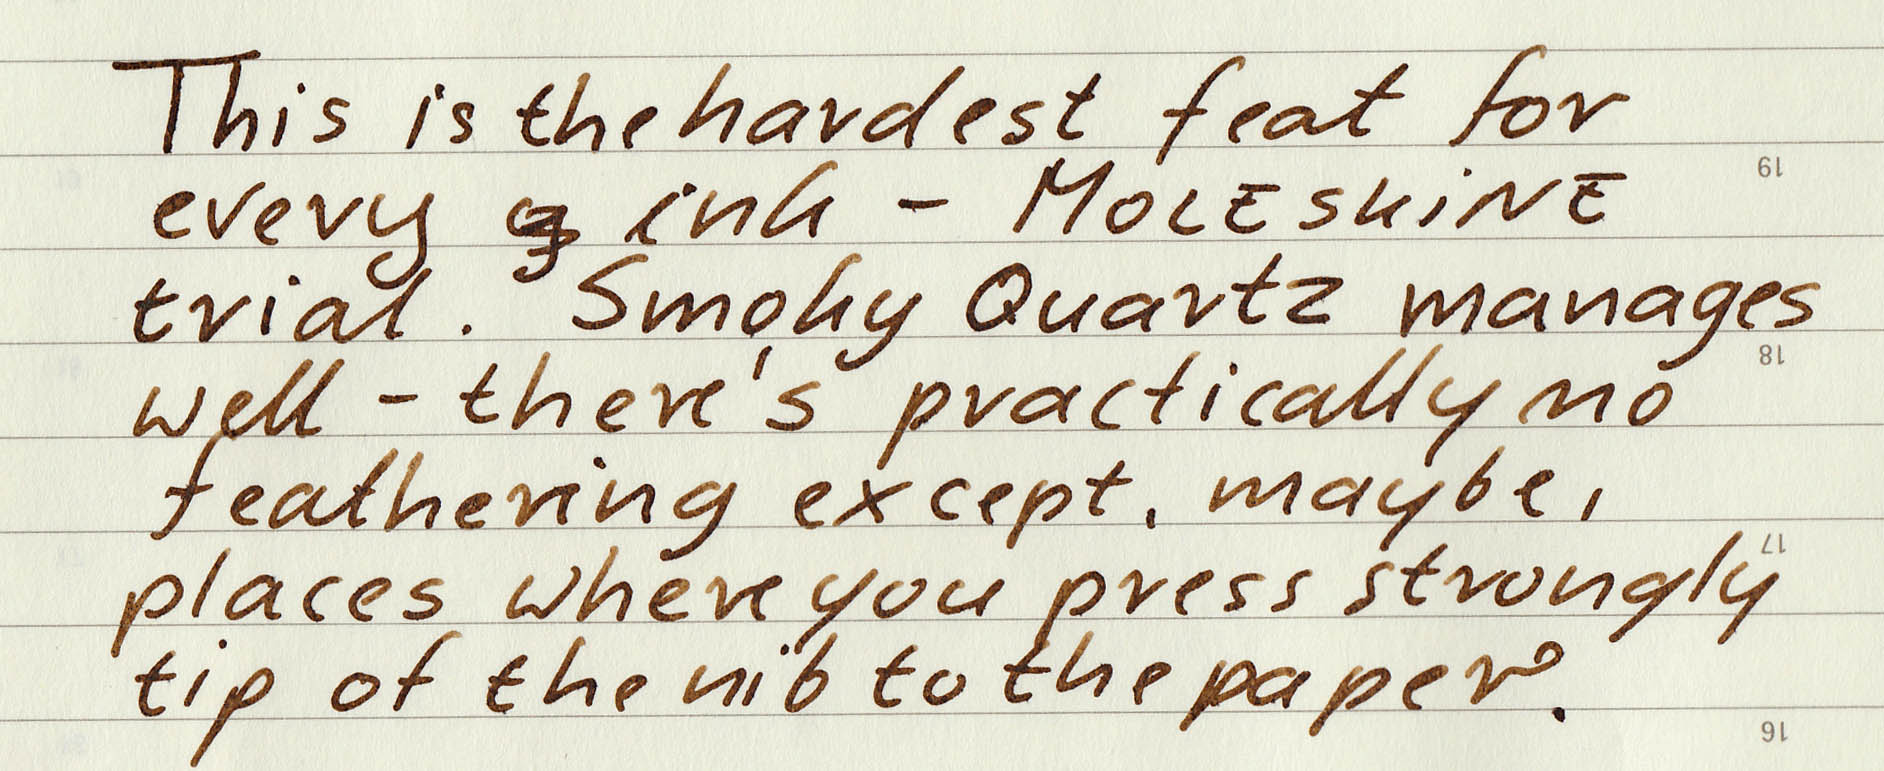 This is the hardest feat for
every ink - MOLESKINE
19
trial. Smoky Quartz manages
18
well - there's practically no
feathering except, maybe,
17
places where you press strongly
tip of the nib to the paper.
16